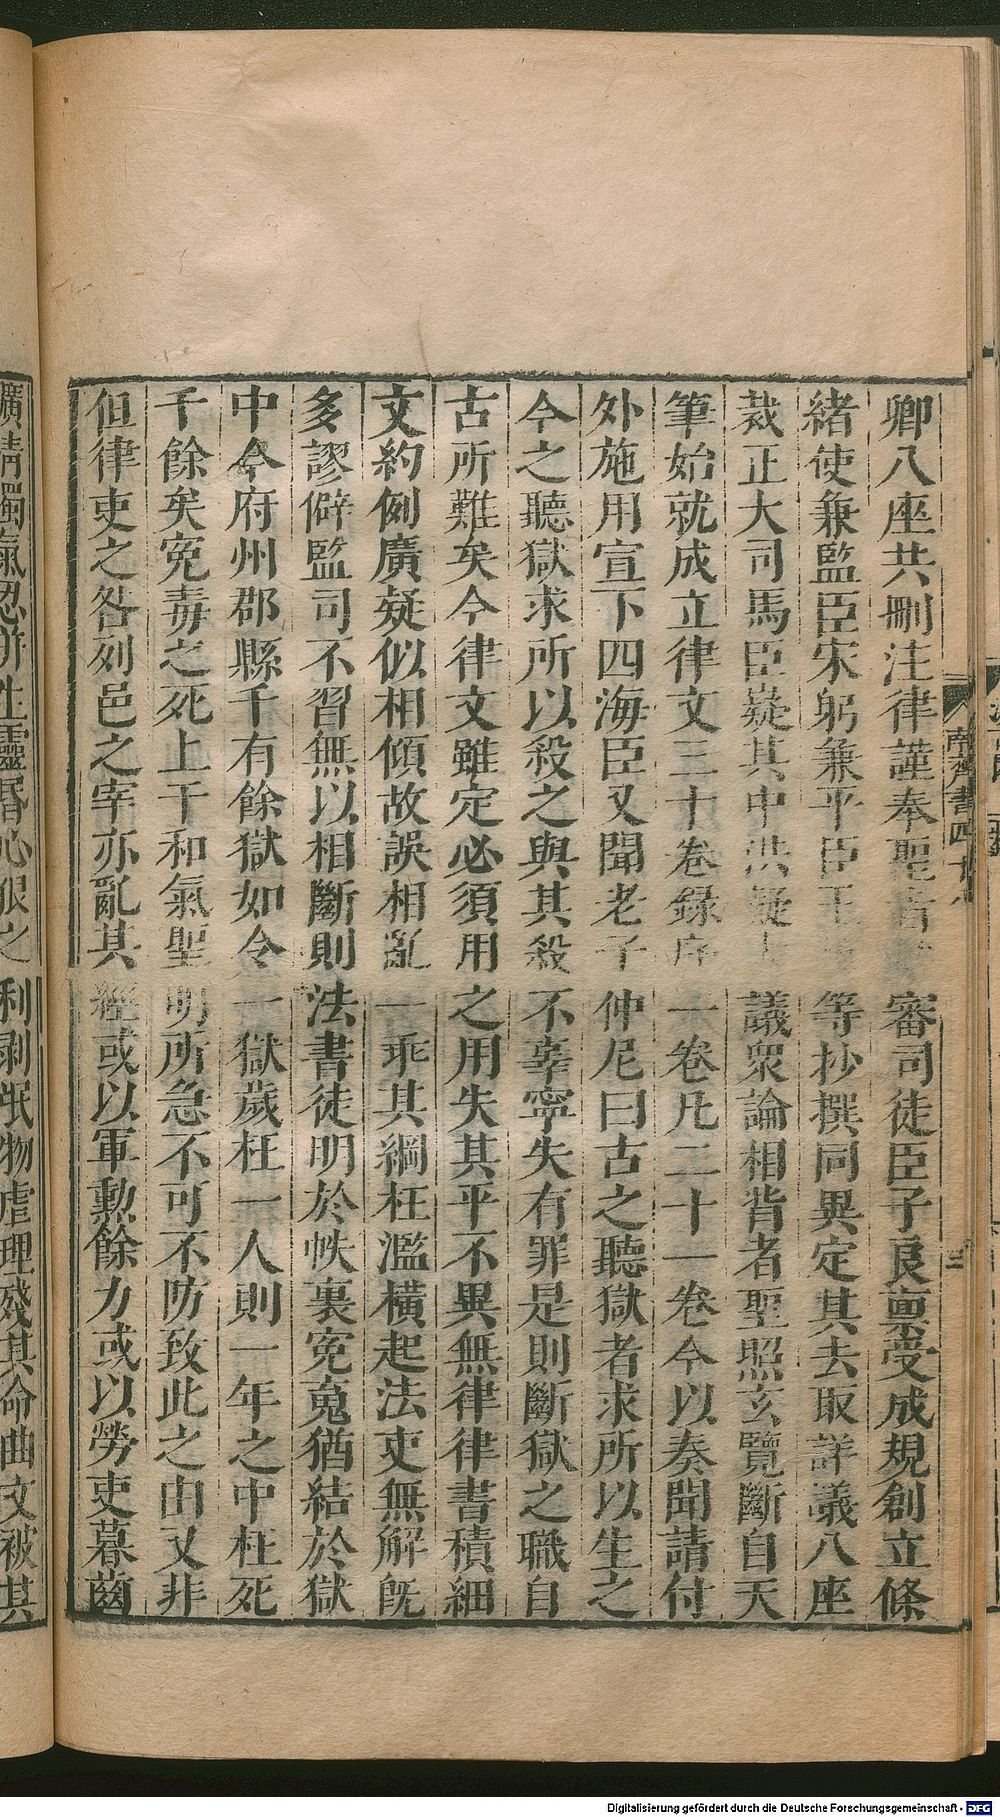 南齊書四十八
三
卿八座共刪注律謹奉聖旨 審司徒臣子良禀受成規創立條
緒使兼監臣宋躬兼平臣王 等抄撰同異定其去取詳議八座
裁正大司馬臣嶷其中洪疑大議衆論相背者聖照玄覽斷自天
筆始就成立律文三十卷錄序一卷凡二十一卷今以奏聞請付
外施用宣下四海臣又聞老子仲尼曰古之聽獄者求所以生之
今之聽獄求所以殺之與其殺不辜寧失有罪是則斷獄之職自
古所難矣今律文雖定必須用之用失其平不異無律律書積細
文約例廣疑似相傾故誤相亂一乖其綱枉濫橫起法吏無解旣
多謬僻監司不習無以相斷則法書徒明於帙裏冤䰟猶結於獄
中今府州郡縣千有餘獄如令一獄歲枉一人則一年之中枉死
千餘矣冤毒之死上干和氣聖明所急不可不防致此之由又非
但律吏之咎列邑之宰亦亂其經或以軍勳餘力或以勞吏暮齒
獷情濁氣忍倂生靈昏心狠之利剥氓物虐理殘其命曲文被其
Digitalisierung gefördert durch die Deutsche Forschungsgemeinschaft - DFG